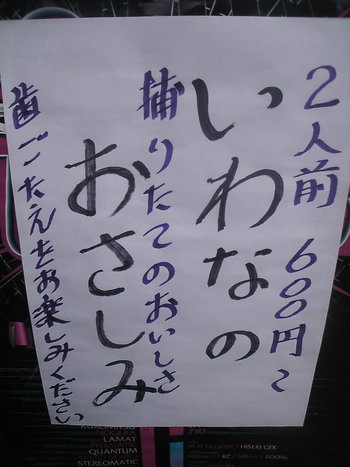 ２人前 600円〜
いわなの
捕りたてのおいしさ
おさしみ
歯ごたえをお楽しみください
LAMAT
QUANTUM
STEREOMATIC
ZIKI